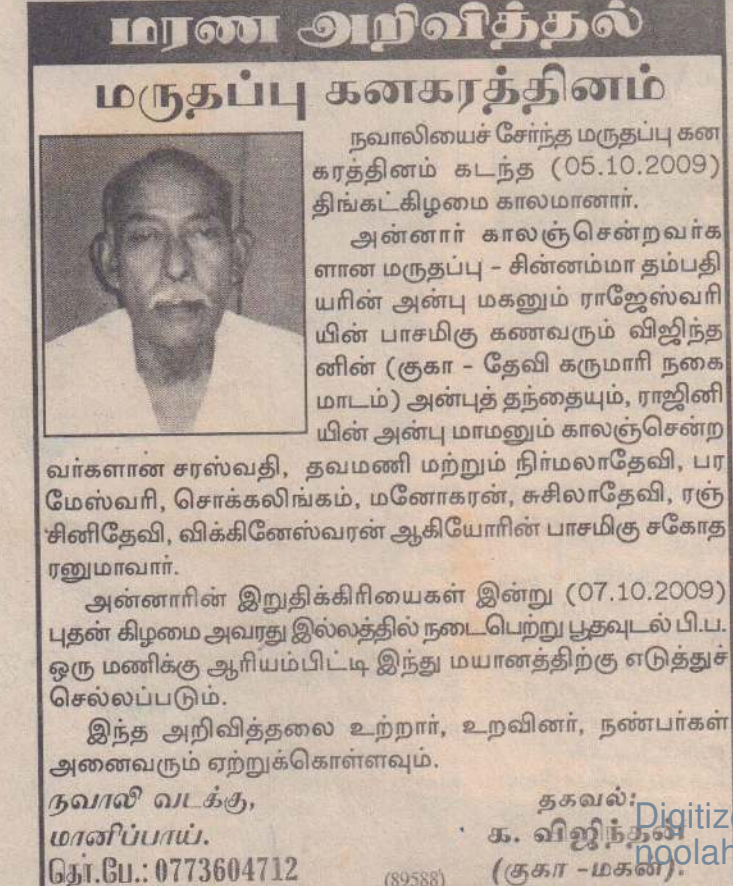 மரண அறிவித்தல்
மருதப்பு கனகரத்தினம்
நவாலியைச் சேர்ந்த மருதப்பு கன
கரத்தினம் கடந்த (05.10.2009)
திங்கட்கிழமை காலமானார்.
அன்னார் காலஞ்சென்றவர்க
ளான மருதப்பு – சின்னம்மா தம்பதி
யரின் அன்பு மகனும் ராஜேஸ்வரி
யின் பாசமிகு கணவரும் விஜிந்த
னின் (குகா – தேவி கருமாரி நகை
மாடம்) அன்புத் தந்தையும், ராஜினி
யின் அன்பு மாமனும் காலஞ்சென்ற
வர்களான சரஸ்வதி, தவமணி மற்றும் நிர்மலாதேவி, பர
மேஸ்வரி, சொக்கலிங்கம், மனோகரன், சுசிலாதேவி, ரஞ்
சினிதேவி, விக்கினேஸ்வரன் ஆகியோரின் பாசமிகு சகோத
ரனுமாவார்.
அன்னாரின் இறுதிக்கிரியைகள் இன்று (07.10.2009)
புதன் கிழமை அவரது இல்லத்தில் நடைபெற்று பூதவுடல் பி.ப.
ஒரு மணிக்கு ஆரியம்பிட்டி இந்து மயானத்திற்கு எடுத்துச்
செல்லப்படும்.
இந்த அறிவித்தலை உற்றார், உறவினர், நண்பர்கள்
அனைவரும் ஏற்றுக்கொள்ளவும்.
நவாலி வடக்கு,
மானிப்பாய்.
தொ.பே.: 0773604712
(89588)
தகவல்:
க. விஜிந்தன்
(குகா –மகன்).
Digitize
noolah